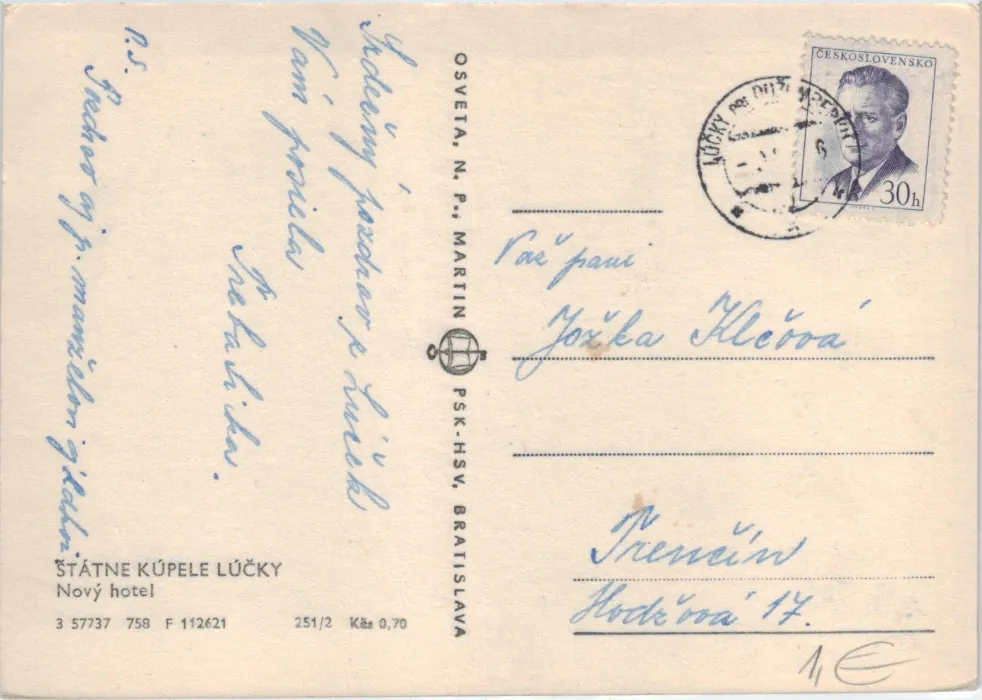 P.S.
Pozdrav aj p. manželovi
Srdečný pozdrav z Lúček
Vám posiela
OSVETA, N. P., MARTIN
PSK-HSV, BRATISLAVA
ČESKOSLOVENSKO
30h
LÚČKY PRI RUŽOMBERKU
Váž pani
Jožka Klčová
Trenčín
Hodžová 17.
ŠTÁTNE KÚPELE LÚČKY
Nový hotel
3 57737 758 F 112621 251/2 Kčs 0,70
1,€